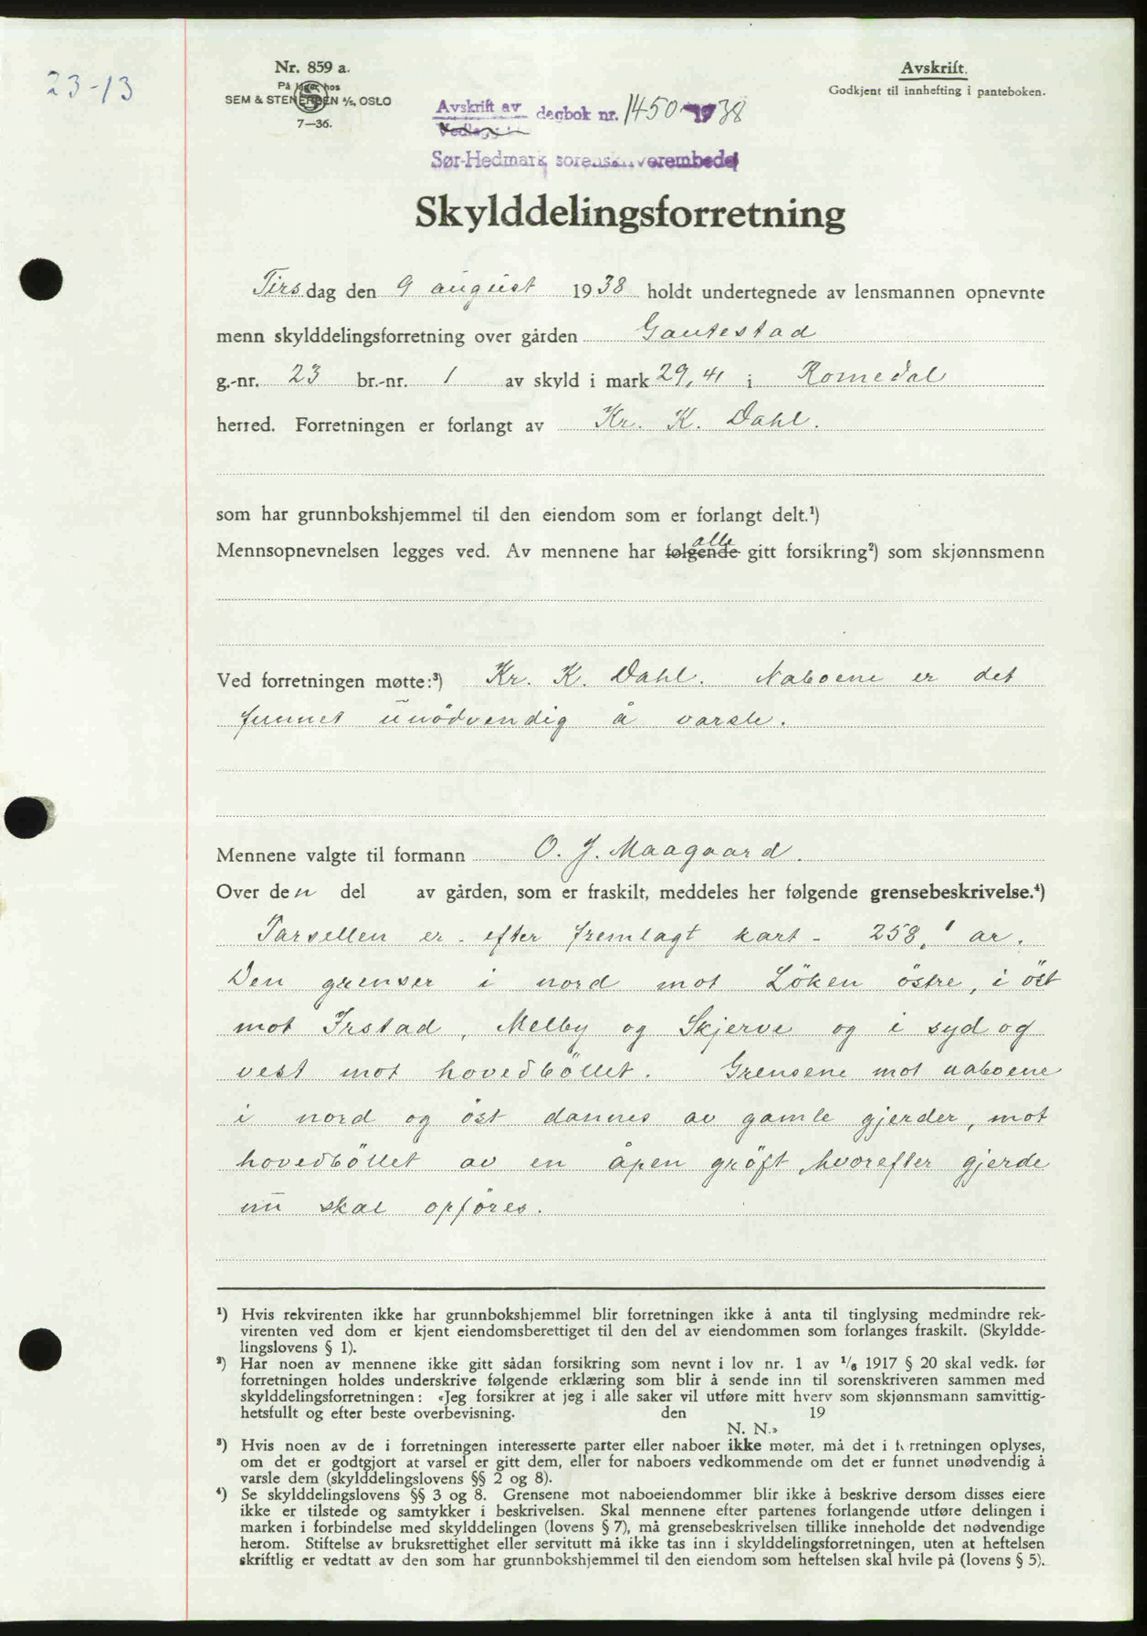 23-13
Nr. 859 a.
På lager hos
SEM & STENERSEN A/S, OSLO
7—36.
Avskrift.
Godkjent til innhefting i panteboken.
Avskrift av dagbok nr. 1450 1938
Vedlegg
Sør-Hedmark sorenskriverembede
Skylddelingsforretning
Tirsdag den 9 august 1938 holdt undertegnede av lensmannen opnevnte
menn skylddelingsforretning over gården Gautestad
g.-nr. 23 br.-nr. 1 av skyld i mark 29,41 i Romedal
herred. Forretningen er forlangt av Kr. K. Dahl.
som har grunnbokshjemmel til den eiendom som er forlangt delt.¹)
alle
Mennsopnevnelsen legges ved. Av mennene har følgende gitt forsikring²) som skjønnsmenn
Ved forretningen møtte:³) Kr. K. Dahl. Naboene er det
funnet unödvendig å varsle.
Mennene valgte til formann O. J. Maagaard.
Over den del av gården, som er fraskilt, meddeles her følgende grensebeskrivelse.⁴)
Parsellen er - efter fremlagt kart - 258,1 ar.
Den grenser i nord mot Löken östre, i öst
mot Irstad, Melby og Skjerve og i syd og
vest mot hovedböllet. Grensene mot naboene
i nord og öst dannes av gamle gjerder, mot
hovedböllet av en åpen gröft, hvorefter gjerde
nu skal opföres.
¹) Hvis rekvirenten ikke har grunnbokshjemmel blir forretningen ikke å anta til tinglysing medmindre rek-
virenten ved dom er kjent eiendomsberettiget til den del av eiendommen som forlanges fraskilt. (Skyldde-
lingslovens § 1).
²) Har noen av mennene ikke gitt sådan forsikring som nevnt i lov nr. 1 av 1/6 1917 § 20 skal vedk. før
forretningen holdes underskrive følgende erklæring som blir å sende inn til sorenskriveren sammen med
skylddelingsforretningen: «Jeg forsikrer at jeg i alle saker vil utføre mitt hverv som skjønnsmann samvittig-
hetsfullt og efter beste overbevisning. den 19
N. N.»
³) Hvis noen av de i forretningen interesserte parter eller naboer ikke møter, må det i forretningen oplyses,
om det er godtgjort at varsel er gitt dem, eller for naboers vedkommende om det er funnet unødvendig å
varsle dem (skylddelingslovens §§ 2 og 8).
⁴) Se skylddelingslovens §§ 3 og 8. Grensene mot naboeiendommer blir ikke å beskrive dersom disses eiere
ikke er tilstede og samtykker i beskrivelsen. Skal mennene efter partenes forlangende utføre delingen i
marken i forbindelse med skylddelingen (lovens § 7), må grensebeskrivelsen tillike inneholde det nødvendige
herom. Stiftelse av bruksrettighet eller servitutt må ikke tas inn i skylddelingsforretningen, uten at heftelsen
skriftlig er vedtatt av den som har grunnbokshjemmel til den eiendom som heftelsen skal hvile på (lovens § 5).